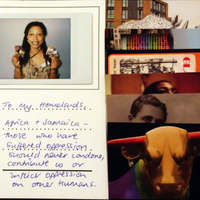 To my Homelands,
Africa + Jamaica -
those who have
suffered oppression
should never condone,
contribute to or
inflict oppression
on other humans.